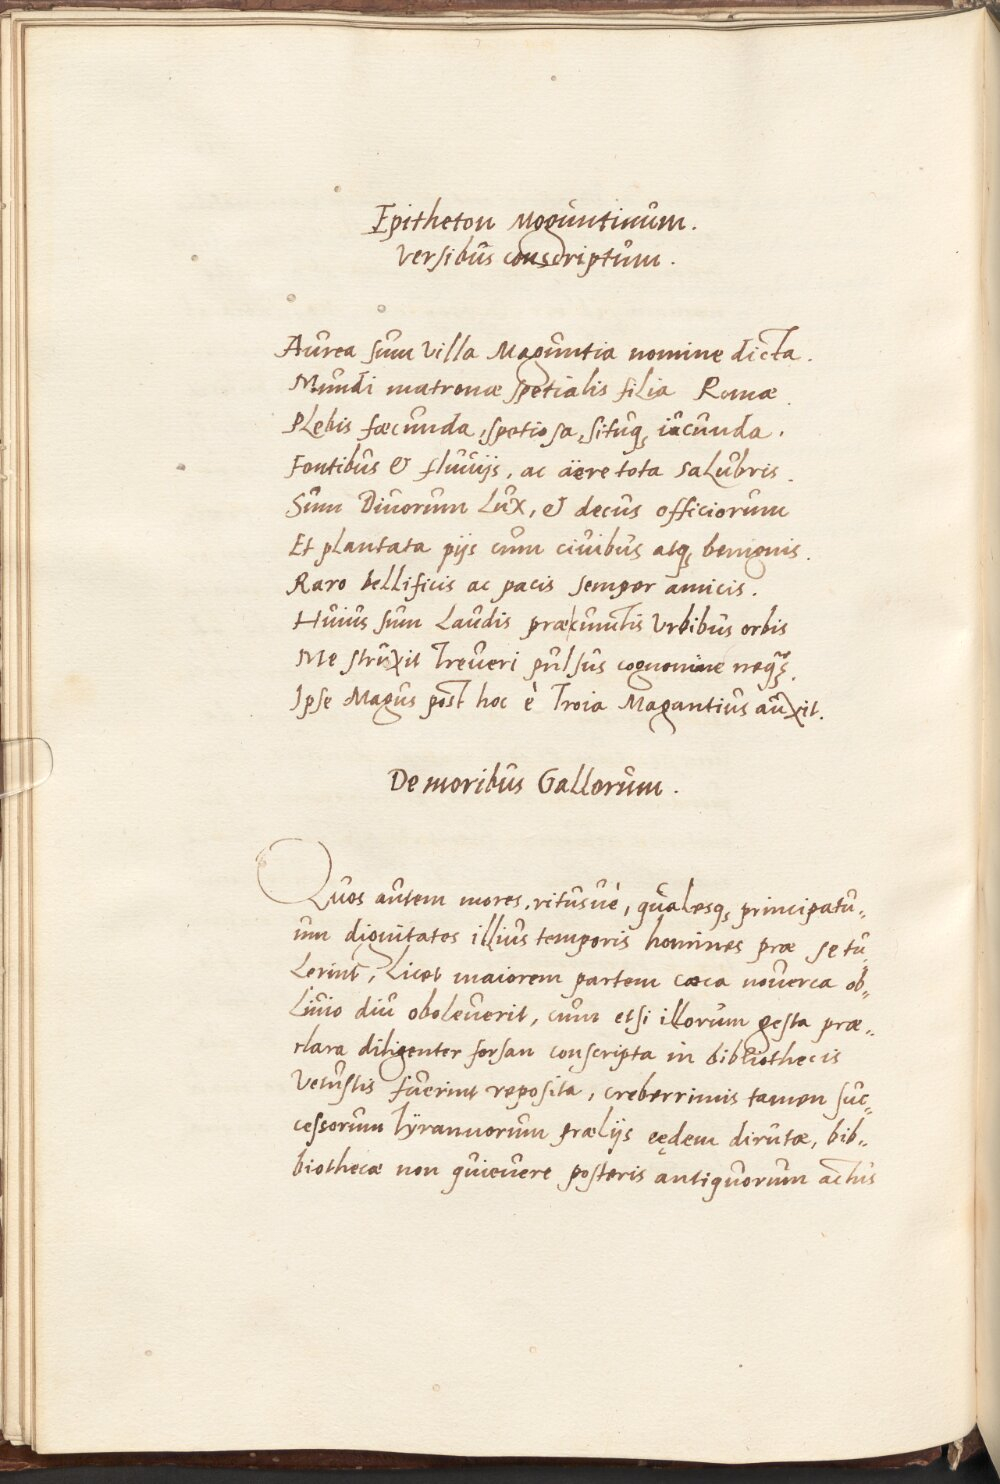 Epitheton Moguntinum.
Versibus conscriptum.
Aurea sum Villa Maguntia nomine dicta.
Mundi matronæ spetialis filia Romæ.
Plebis fæcunda, spatiosa, situq, iucunda.
Fontibus & fluuijs, ac äere tota salubris.
Sum Diuorum Lux, & decus officiorum
Et plantata pijs cum ciuibus atq, benignis.
Raro bellificis ac pacis semper amicis.
Huius sum Laudis præ cunctis Vrbibus orbis
Me struxit Treueri pulsus cognomine neq
Ipse Magus post hoc è Troia Magantius auxit.
De moribus Gallorum.
Quos autem mores, ritusuè, qualesq, principatu„
um dignitates illius temporis homines præ se tu„
Lerint, Licet maiorem partem cæca nouerca ob„
Liuio diu oboleuerit, cum etsi illorum gesta præ„
clara diligenter forsan conscripta in bibliothecis
Vetustis fuerint reposita, creberrimis tamen suc„
cessorum Tÿrannorum prælijs eędem dirutæ, bib„
biothecæ non quieuere posteris antiquorum actus